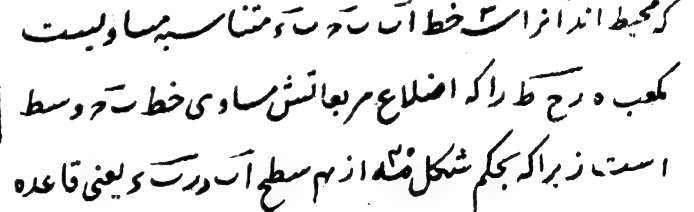 که محیط اند انرا ۳ خط اب ب ح ب ء متناسبه مساویست
مکعب ه ر ح ط را که اضلاع مربعاتش مساوی خط ب ح وسط
است زیراکه بحکم شکل از سطح اب در ب ء یعنی قاعده